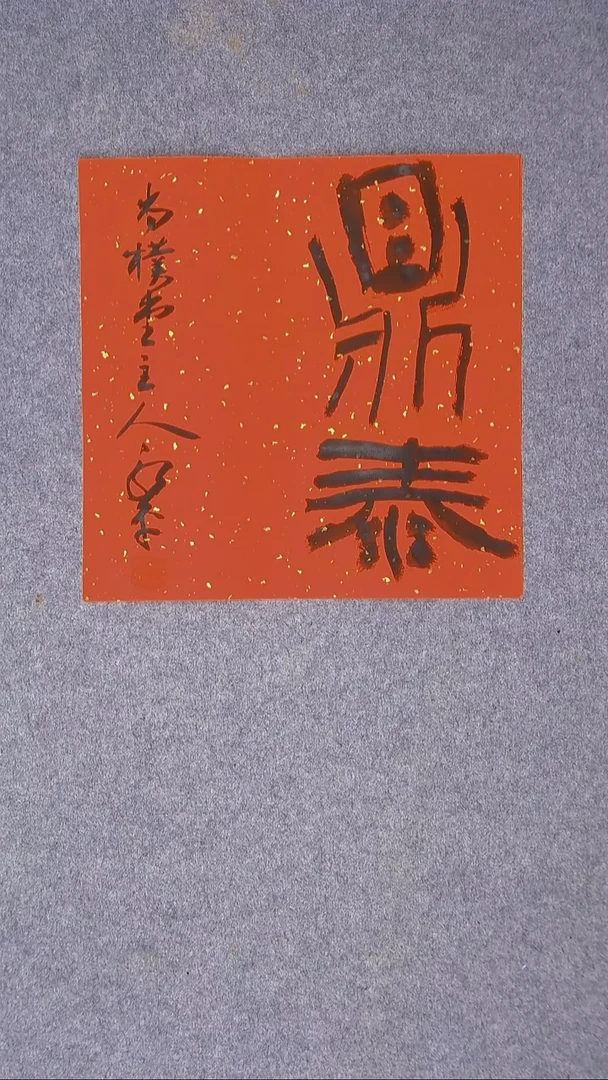 鼎泰
为樸堂主人